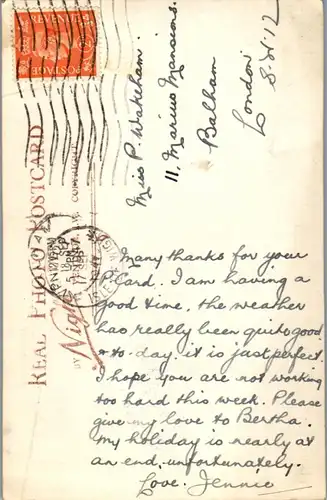 POSTAGE
REVENUE
Miss P. Wakeham.
11, Marius Mansions.
Balham
London
S.W.12
REAL PHOTO POSTCARD
BY Nigh
COPYRIGHT
Many thanks for your
P'Card. I am having a
good time, the weather
has really been quite good
& to-day, it is just perfect.
I hope you are not working
too hard this week. Please
give my love to Bertha.
My holiday is nearly at
an end, unfortunately.
Love. Jennie